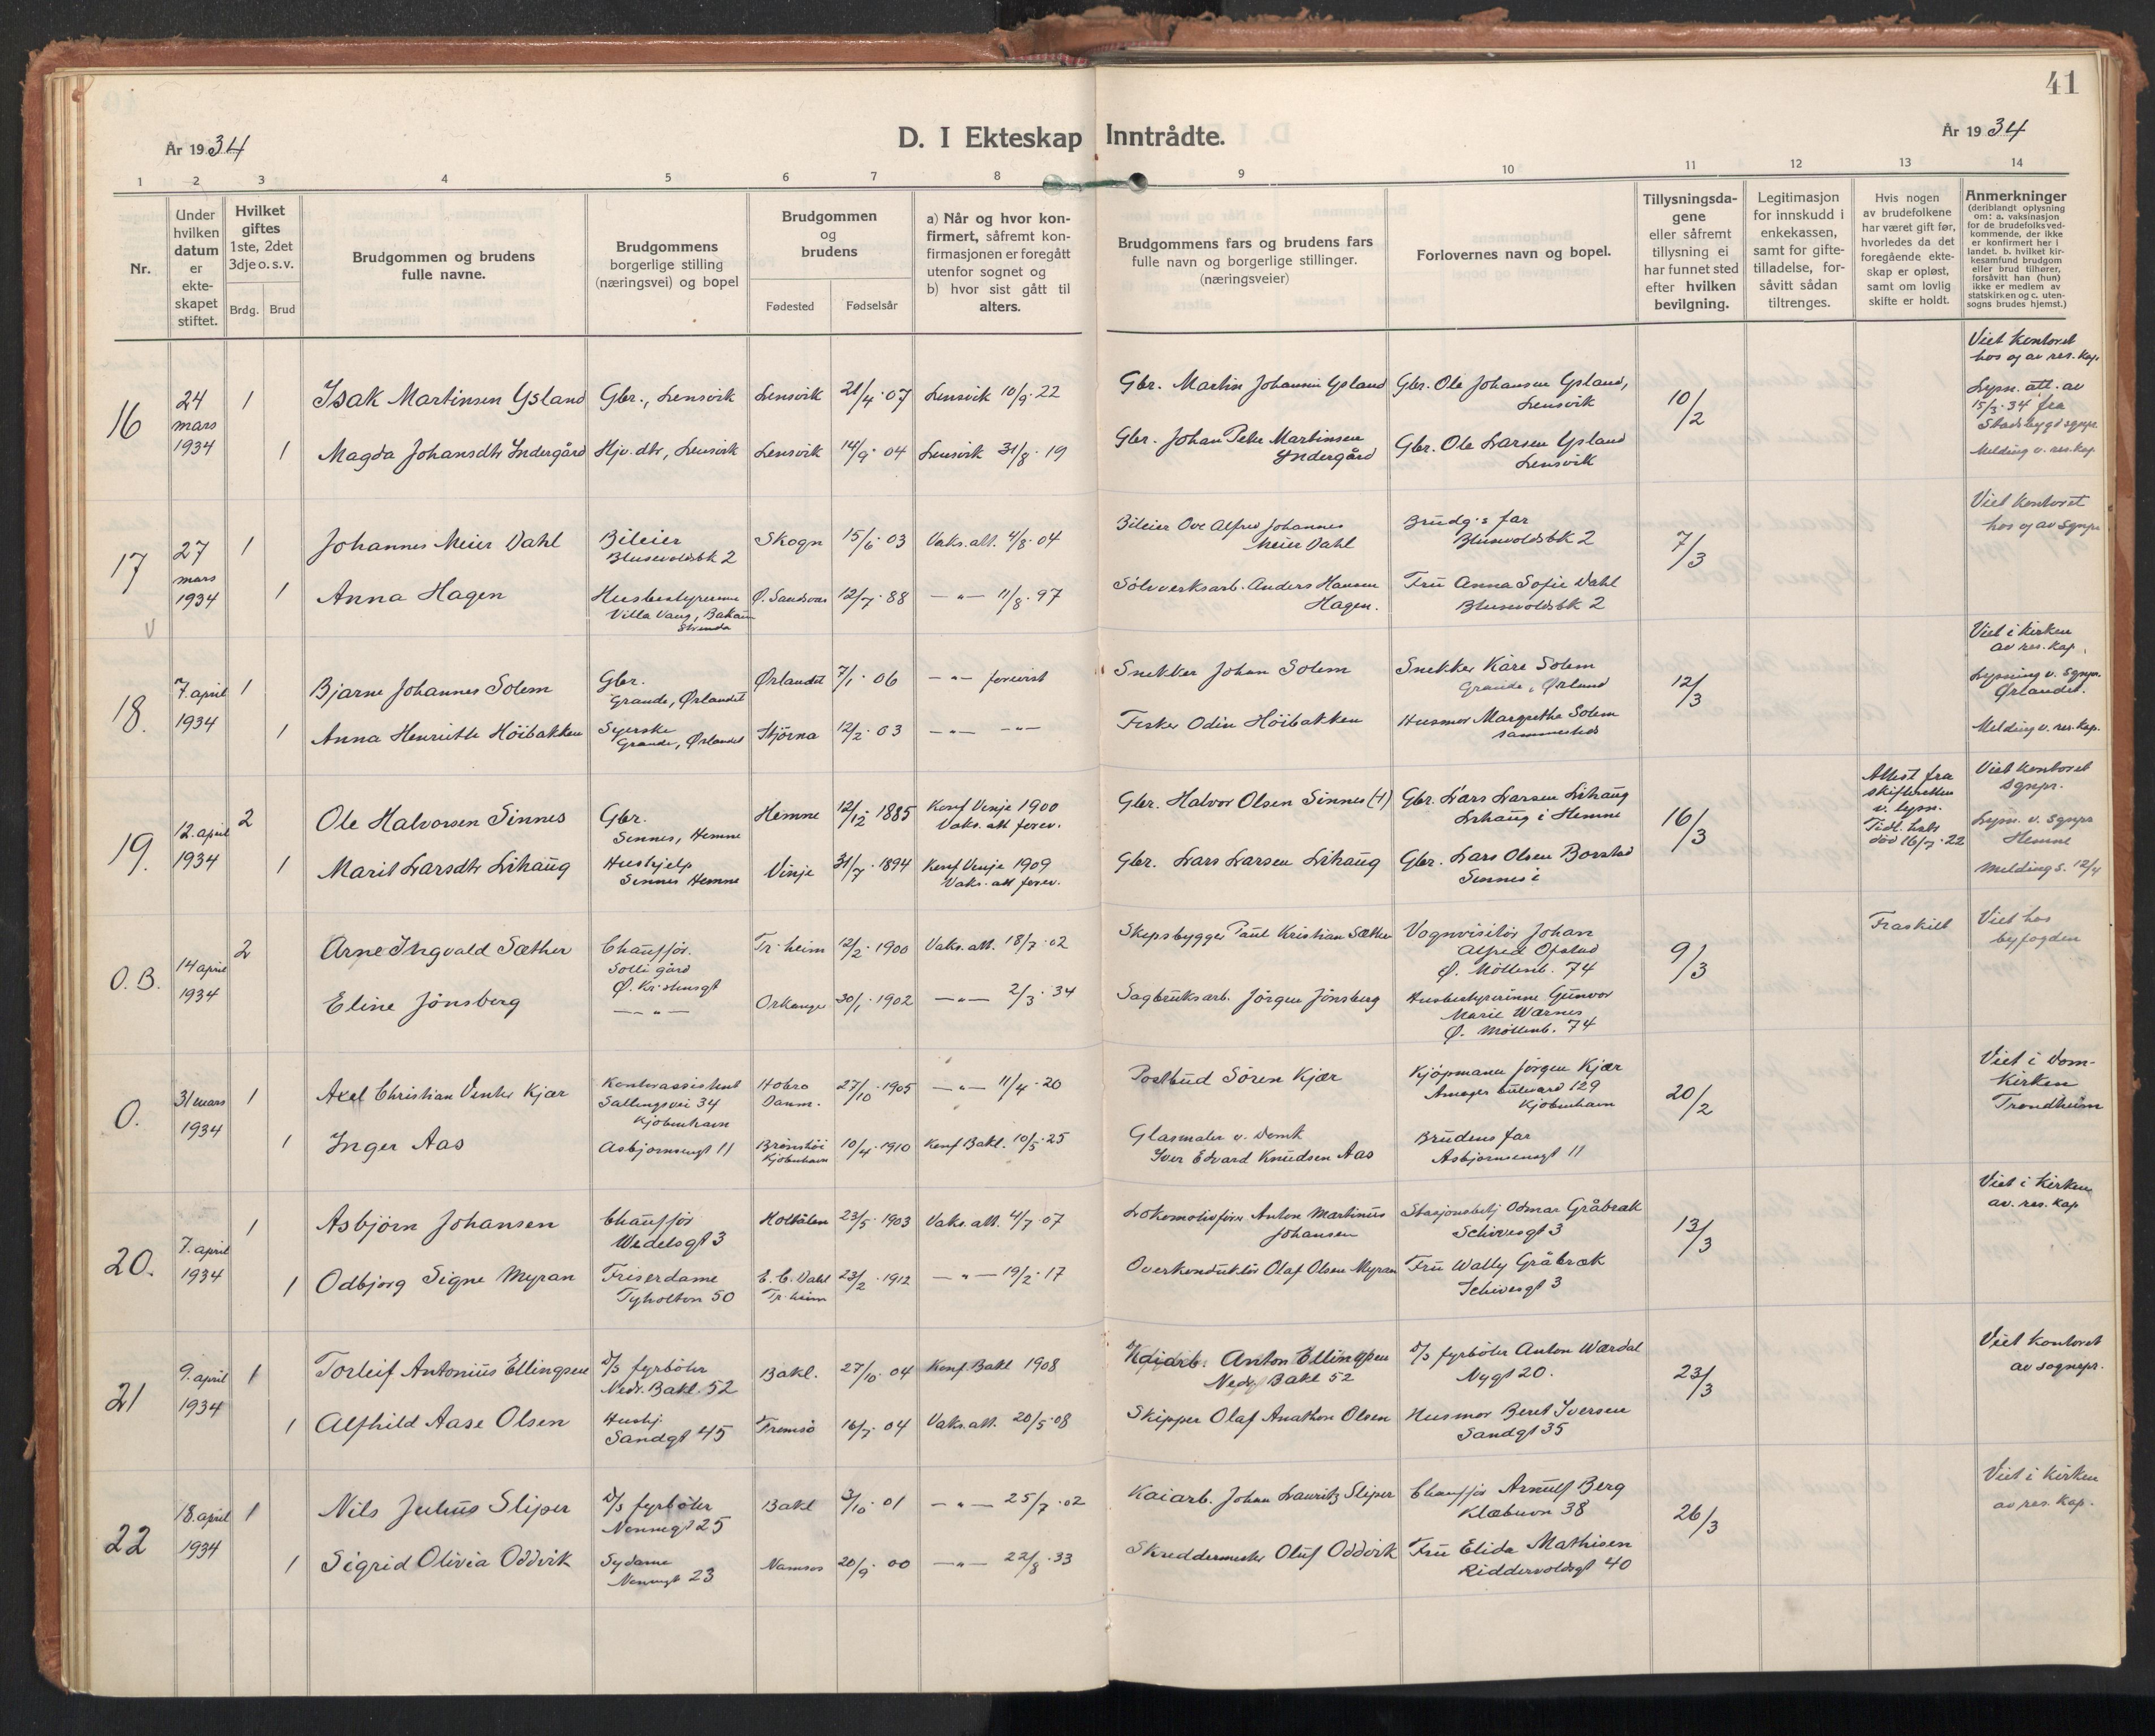 41
År 1934
D. I Ekteskap Inntrådte.
År 1934
1 2 3 4 5 6 7 8 9 10 11 12 13 14
Nr.
Under hvilken datum er ekteskapet stiftet.
Hvilket giftes 1ste, 2det 3dje o. s. v.
Brdg. Brud
Brudgommen og brudens fulle navne.
Brudgommens borgerlige stilling (næringsvei) og bopel
Brudgommen og brudens
Fødested Fødselsår
a) Når og hvor konfirmert, såfremt konfirmasjonen er foregått utenfor sognet og
b) hvor sist gått til alters.
Brudgommens fars og brudens fars fulle navn og borgerlige stillinger. (næringsveier)
Forlovernes navn og bopel.
Tillysningsdagene eller såfremt tillysning ei har funnet sted efter hvilken bevilgning.
Legitimasjon for innskudd i enkekassen, samt for giftetilladelse, forsåvitt sådan tiltrenges.
Hvis nogen av brudefolkene har været gift før, hvorledes da det foregående ekteskap er opløst, samt om lovlig skifte er holdt.
Anmerkninger (deriblandt oplysning om: a. vaksinasjon for de brudefolks vedkommende, der ikke er konfirmert her i landet. b. hvilket kirkesamfund brudgom eller brud tilhører, forsåvitt han (hun) ikke er medlem av statskirken og c. utensogns brudes hjemst.)
16
24 mars 1934
1 Isak Martinsen Ysland Gbr., Lensvik Lensvik 21/4·07 Lensvik 10/9·22
Gbr. Martin Johansen Ysland
Gbr. Ole Johansen Ysland, Lensvik
10/2
Viet kontoret hos og av res. kap.
Lysn. att. av 15/3·34 fra Stadsbygd sgnpr.
1 Magda Johansdtr Yndergård Hjv. dtr, Lensvik Lensvik 14/9·04 Lensvik 31/8·19
Gbr. Johan Peter Martinsen Yndergård
Gbr. Ole Larsen Ysland Lensvik
Melding v. res. kap.
17
27 mars 1934
1 Johannes Meier Dahl Bileier Blusevoldsbk 2 Skogn 15/6·03 Vaks. att. 4/8·04
Bileier Ove Alfred Johannes Meier Dahl
Brudg:s far Blusevoldsbk 2
7/3
Viet kontoret hos og av sgnpr
1 Anna Hagen Husbestyrerinne Villa Vang, Bakaun Strinda Ø. Sandsvær 12/7·88 —"— 11/8·97
Sølvverksarb. Anders Hansen Hagen.
Fru Anna Sofie Dahl Blusevoldsbk 2
18.
7. april 1934
1 Bjarne Johannes Solem Gbr. Grande, Ørlandet Ørlandet 7/1·06 —"— forevist
Snekker Johan Solem
Snekker Kåre Solem Grande, Ørland
12/3
Viet i kirken av res. kap.
Lysning v. sgnpr. Ørlandet.
1 Anna Henriette Höibakken Syerske Grande, Ørlandet Stjørna 12/2·03 —"— —"—
Fisker Odin Höibakken
Husmor Margrethe Solem sammesteds
Melding v. res. kap.
19.
12. april 1934
2 Ole Halvorsen Sinnes Gbr. Sinnes, Hemne Hemne 12/12·1885 Konf Vinje 1900 Vaks. att forev.
Gbr. Halvor Olsen Sinnes (†)
Gbr. Lars Larsen Lihaug Lihaug i Hemne
16/3
Attest fra skifteretten v. lysn. Tidl. hustr død 16/7·22
Viet kontoret sgnpr.
Lysn. v. sgnpr Hemne
1 Marit Larsdtr Lihaug Hushjelp Sinnes Hemne Vinje 31/7·1894 Konf Vinje 1909 Vaks. att forev.
Gbr. Lars Larsen Lihaug
Gbr. Lars Olsen Borstad Sinnes i
Melding s. 12/4
O.B.
14 april 1934
2 Arne Ingvald Sæther Chauffør. Solli gård Ø. Kristensgt Tr:heim 12/2·1900 Vaks. att. 18/7·02
Skipsbygger Paul Kristian Sæther
Vognvisitör Johan Alfred Opstad Ø. Möllenb. 74
9/3
Fraskilt
Viet hos byfogden
Eline Jönsberg —"— Orkanger 30/1·1902 —"— 2/3·34
Sagbruksarb. Jörgen Jönsberg
Husbestyrerinne Gunvor Marie Warnes Ø. Möllenb. 74
O.
31 mars 1934
1 Axel Christian Venter Kjær Kontorassistent Sallingsvei 34 Kjöbenhavn Hobro Danm. 27/10·1905 —"— 11/4·20
Postbud Sören Kjær
Kjöpmann Jörgen Kjær Amager bulevard 129 Kjöbenhavn
20/2
Viet i Domkirken Trondheim
1 Inger Aas Asbjørnsensgt 11 Brönshöi Kjöbenhavn 10/4·1910 Konf Bakl. 10/5·25
Glasmaler v. Domk Iver Edvard Knudsen Aas
Brudens far Asbjørnsensgt 11
20.
7. april 1934
1 Asbjørn Johansen Chauffør Wedelsgt 3 Holtålen 23/5·1903 Vaks. att. 4/7·07
Lokomotivförer Anton Martinius Johansen
Stasjonsbetj Odmar Gråbræk Schivesgt 3
13/3
Viet i kirken av. res. kap
1 Odbjørg Signe Myran Friserdame Tyholtvn 50 E. C. Dahl Tr:heim 23/2·1912 —"— 19/2·17
Overkonduktör Olaf Olsen Myran
Fru Wally Gråbræk Schivesgt 3
21
9. april 1934
1 Torleif Antonius Ellingsen D/s fyrböter Nedr. Bakl. 52 Bakl. 27/10·04 Konf. Bakl 1908
Kaiarb. Anton Ellingsen Nedr Bakl 52
D/s fyrböter Anton Wærdal Nygt 20.
23/3
Viet kontoret av sognepr.
1 Alfhild Aase Olsen Hushj. Sandgt 45 Tromsö 16/7·04 Vaks. att. 20/5·08
Skipper Olaf Anathon Olsen
Husmor Beret Iversen Sandgt 35
22
18. april 1934
1 Nils Julius Sliper D/s fyrböter Nonnegt 25 Bakl 3/10·01 —"— 25/7·02
Kaiarb. Johan Lauritz Sliper
Chauffør Arnulf Berg Klæbuvn 38
26/3
Viet i kirken av res. kap.
1 Sigrid Olivia Oddvik Sydame Nonnegt 23 Namsos 20/9·00 —"— 22/8·33
Skreddermester Oluf Oddvik
Fru Elida Mathisen Riddervoldsgt 40